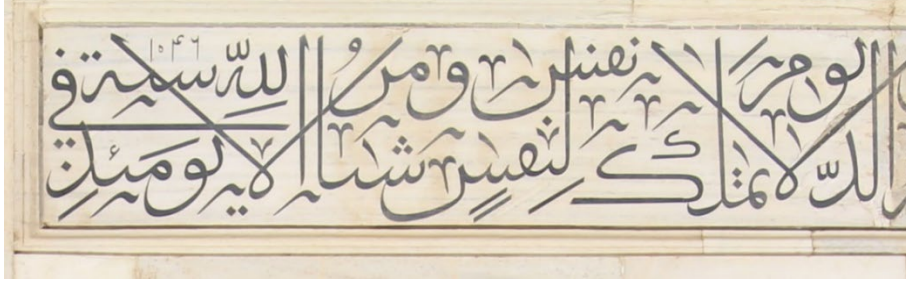 الدين يوم لا تملك نفس لنفس شيئا والأمر يومئذ لله في سنة ١٠٤٦